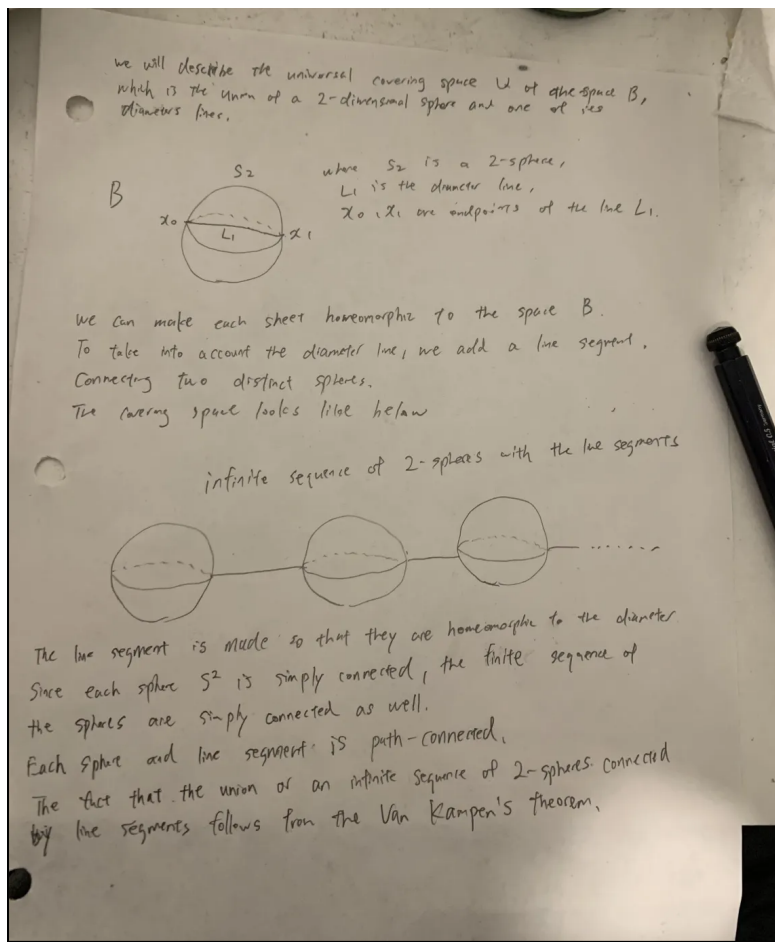 we will describe the universal covering space U of the space B,
which is the union of a 2-dimensional sphere and one of its
diameters lines.
S2
where S2 is a 2-sphere,
B
L1 is the diameter line,
x0, x1 are endpoints of the line L1.
x0
L1
x1
we can make each sheet homeomorphic to the space B.
To take into account the diameter line, we add a line segment.
Connecting two distinct spheres.
The covering space looks like below
infinite sequence of 2-spheres with the line segments
The line segment is made so that they are homeomorphic to the diameter
Since each sphere S² is simply connected, the finite sequence of
the spheres are simply connected as well.
Each sphere and line segment is path-connected.
The fact that the union of an infinite sequence of 2-spheres connected
by line segments follows from the Van Kampen's theorem.